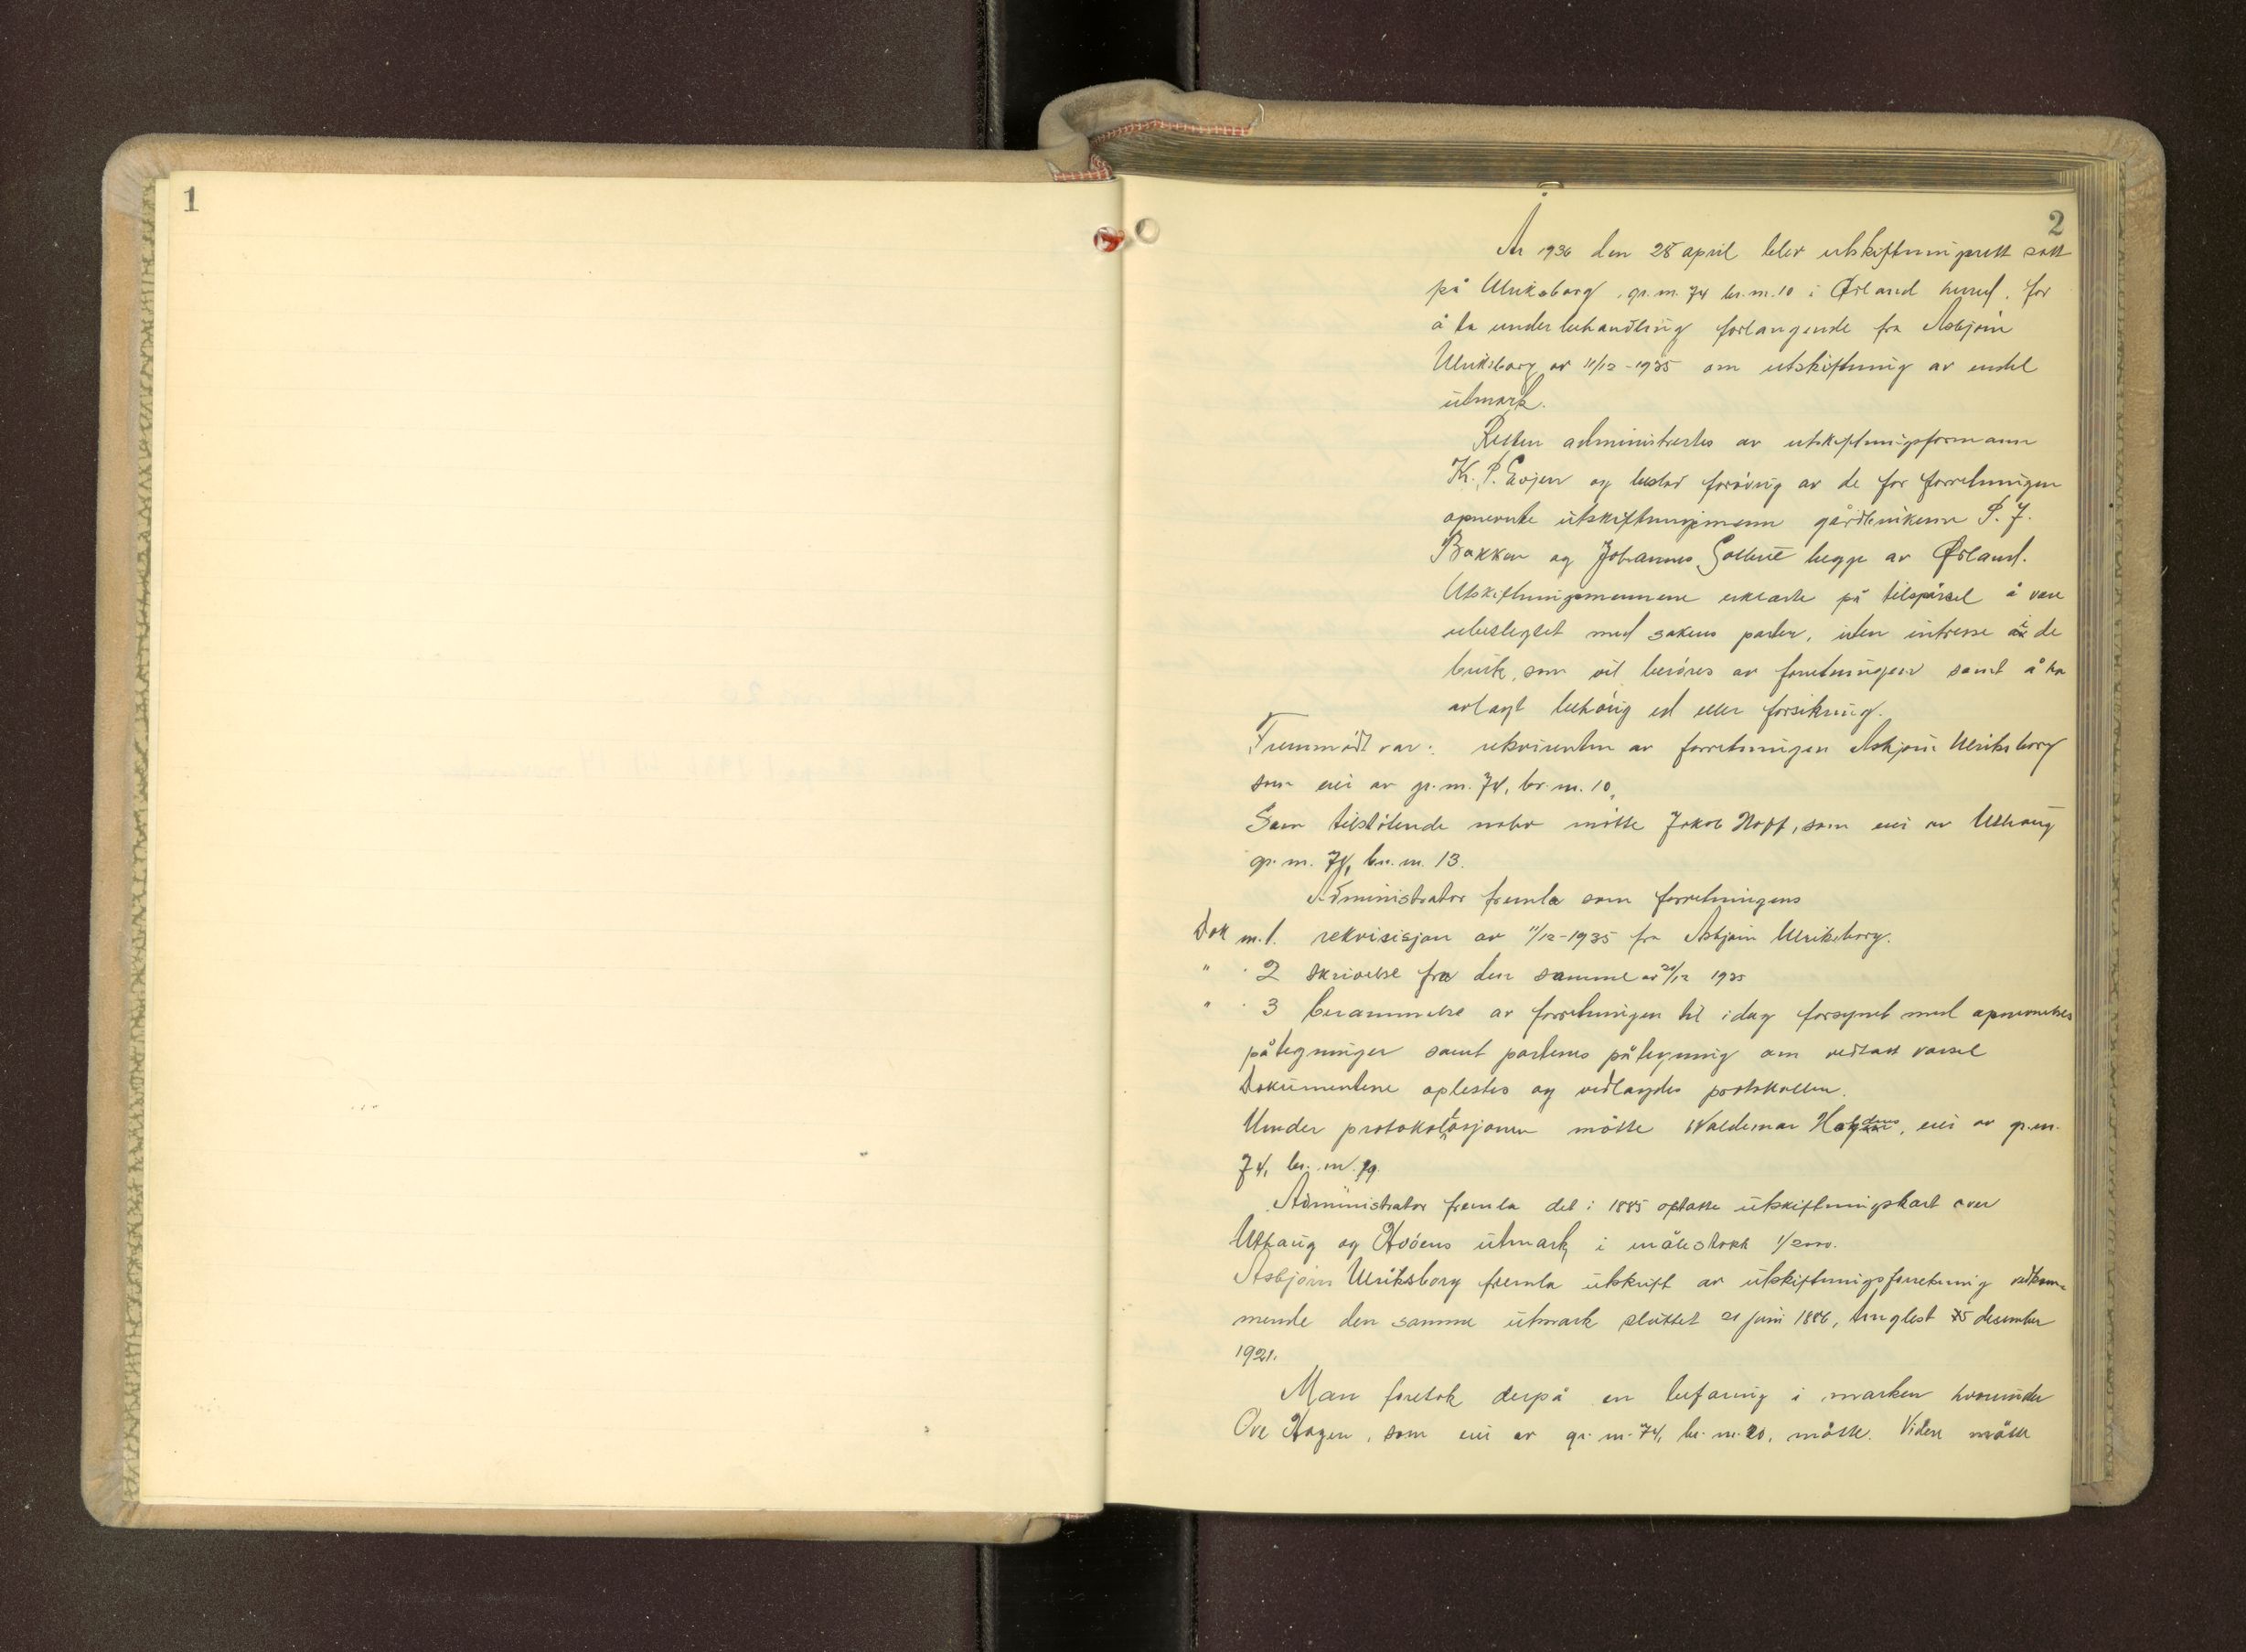 1
2
År 1936 den 28 april blev utskiftningsrett satt
på Ulriksborg, gr. nr. 74 br. nr. 10 i Ørland herred, for
å ta under behandling forlangende fra Asbjørn
Ulriksborg av 11/12-1935 om utskiftning av endel
utmark.
Retten administrertes av utskiftningsformann
K. P. Evjen og bestod forøvrig av de for forretningen
opnevnte utskiftningsmenn gårdbrukerne P. J.
Bakken og Johannes begge av Ørland.
Utskiftningsmennene erklærte på tilspørsel å være
ubeslegtet med sakens parter, uten intresse i de
bruk, som vil berøres av forretningen samt å ha
avlagt behørig ed eller forsikring.
Fremmødt var: rekvirenten av forretningen Asbjørn Ulriksborg
som eier av gr. nr. 74, br. nr. 10.
Som tilstøtende nabo møtte Jakob Hoff, som eier av Uthaug
gr. nr. 74, br. nr. 13.
Administrator fremla som forretningens
Dok nr. 1. rekvisisjon av 11/12-1935 fra Asbjørn Ulriksborg.
" " 2 skrivelse fra den samme av /12 1935
" " 3 berammelse av forretningen til idag forsynet med opnevnelses
påtegninger samt partenes påtegning om vedtatt varsel
Dokumentene oplestes og vedlagdes protokollen.
Under protokollasjonen møtte Waldemar, eier av gr. nr.
74, br. nr. 19.
Administrator fremla det i 1885 optatte utskiftningskart over
Uthaug og Hovens utmark i målestokk 1/2000.
Asbjørn Ulriksborg fremla utskrift av utskiftningsforretning vedkom-
mende den samme utmark sluttet 21 juni 1886, tinglest 15 desember
1921.
Man foretok derpå en befaring i marken hvorunder
Ove Hagen, som eier av gr. nr. 74, br. nr. 20, møtte. Videre møtte